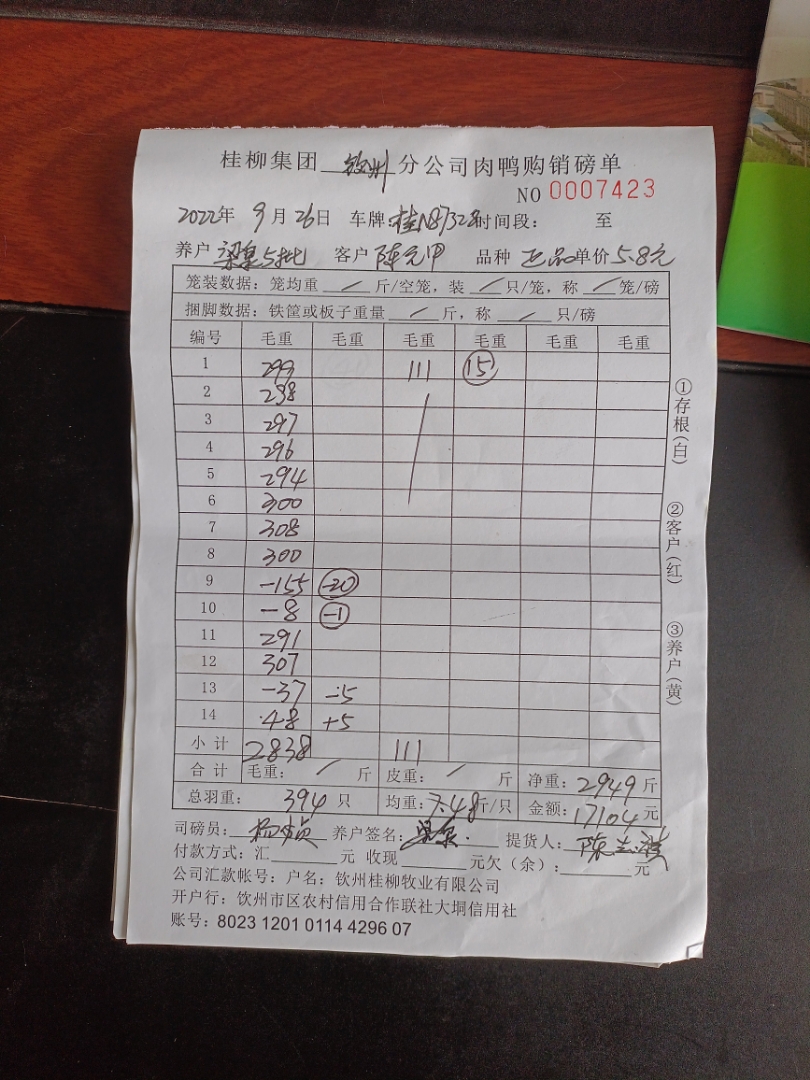 桂柳集团 钦州 分公司肉鸭购销磅单
NO 0007423
2022年 9月26日 车牌:桂N87328 时间段: 至
养户 梁泉5批 客户 陈元甲 品种 正品 单价 5.8元
笼装数据：笼均重 / 斤/空笼，装 / 只/笼，称 / 笼/磅
捆脚数据：铁筐或板子重量 / 斤，称 / 只/磅
编号 毛重 毛重 毛重 毛重 毛重 毛重
1 299 111 15
2 298
3 297
4 296
5 294
6 300
7 308
8 300
9 -155 -20
10 -8 -1
11 291
12 307
13 -37 -5
14 48 +5
小计 2838 111
合计 毛重： / 斤 皮重： / 斤 净重：2949 斤
总羽重： 394 只 均重：7.48 斤/只 金额：17104 元
司磅员： 养户签名：梁泉 提货人：
付款方式：汇 元 收现 元欠（余）： 元
公司汇款帐号：户名：钦州桂柳牧业有限公司
开户行：钦州市区农村信用合作联社大垌信用社
账号：8023 1201 0114 4296 07
①存根(白)
②客户(红)
③养户(黄)